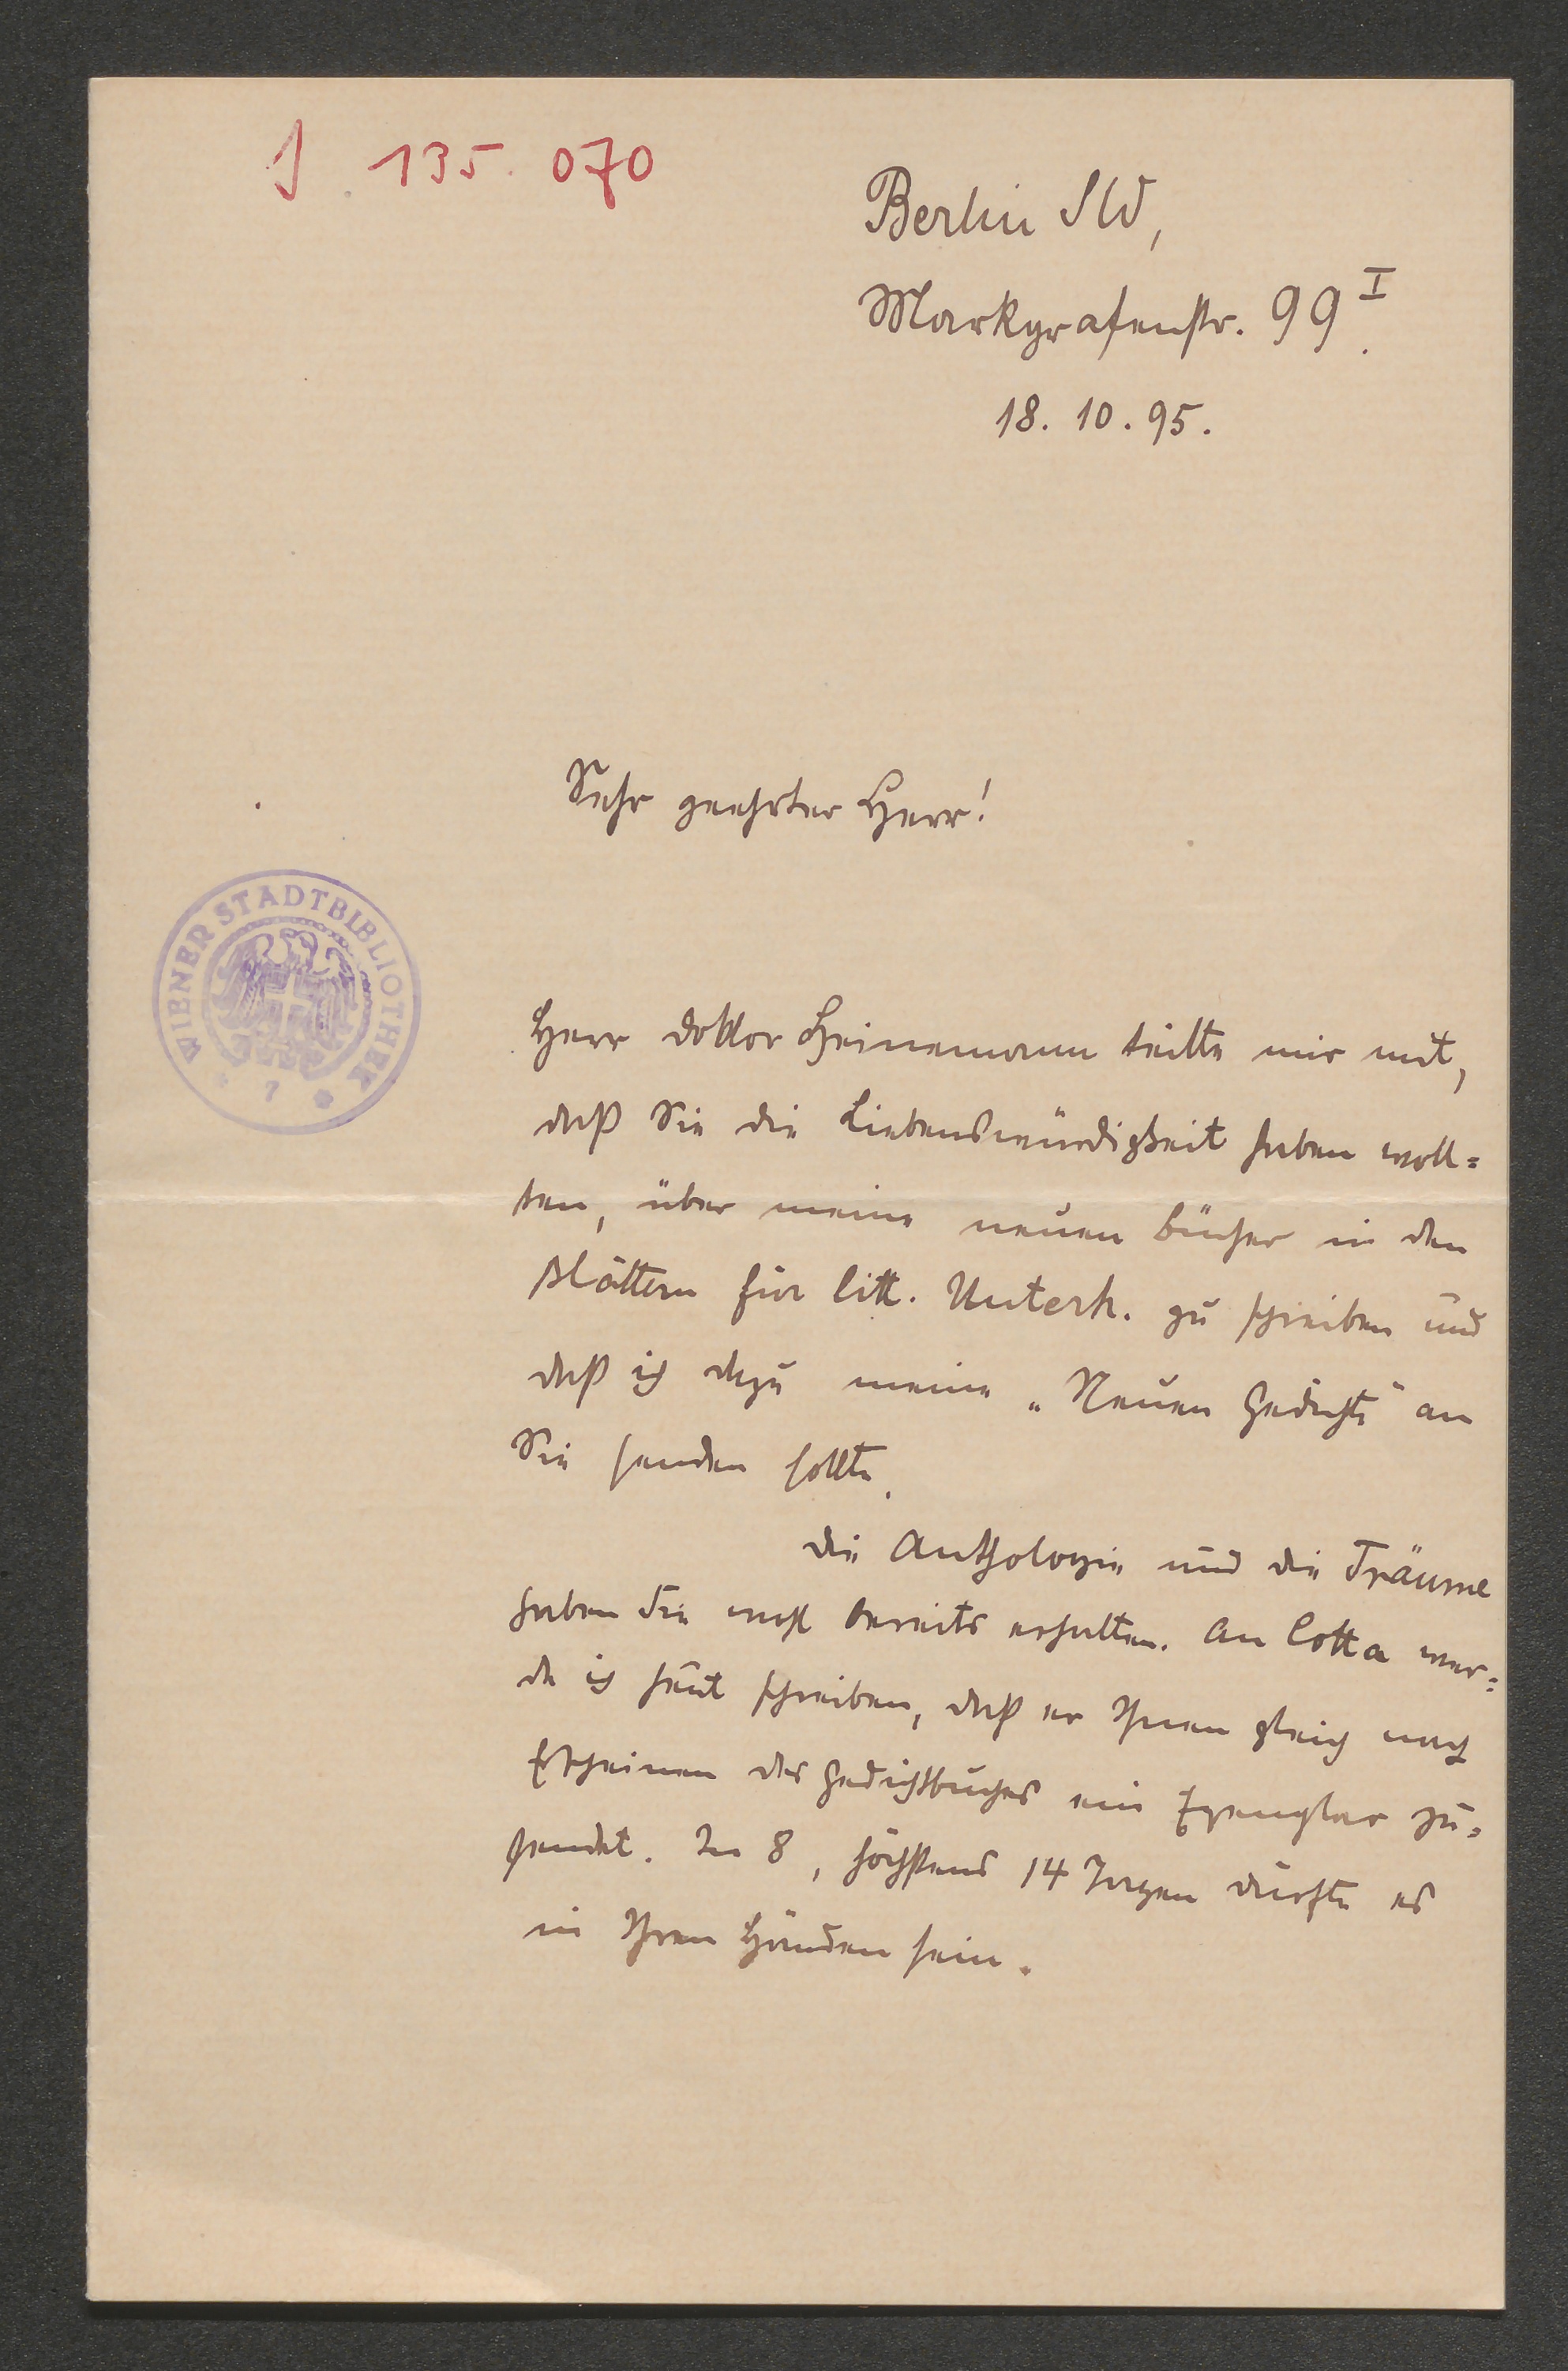 J. 135.070
Berlin SW,
Markgrafenstr. 99 I.
18. 10. 95.
Sehr geehrter Herr!
WIENER STADTBIBLIOTHEK
* 7 *
Herr Doktor Heinemann teilte mir mit,
daß Sie die Liebenswürdigkeit haben woll=
ten, über meine neuen Bücher in den
Blättern für litt. Unterh. zu schreiben und
daß ich dazu meine „Neuen Gedichte" an
Sie senden sollte.
Die Anthologie und die Träume
haben Sie wohl bereits erhalten. An Cotta wer=
de ich heut schreiben, daß er Ihnen gleich nach
Erscheinen des Gedichtbuches ein Exemplar zu=
sendet. In 8, höchstens 14 Tagen dürfte es
in Ihren Händen sein.